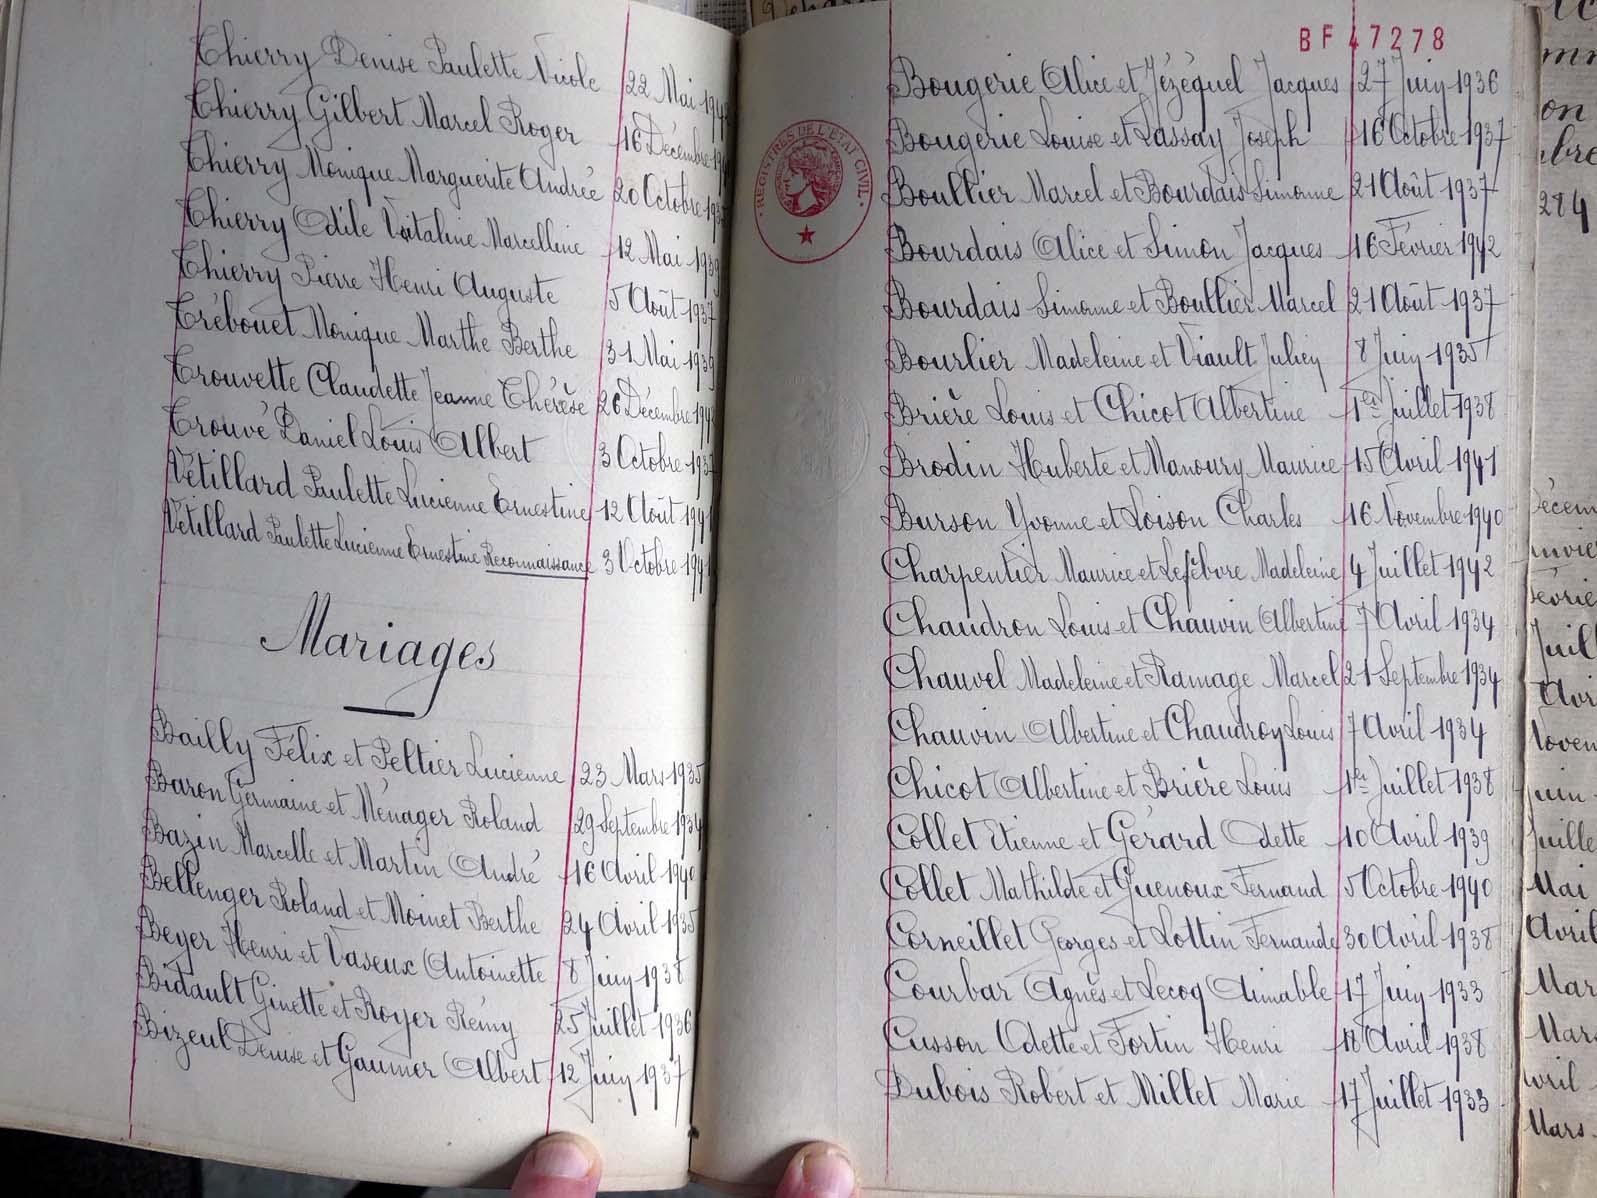 Thierry Denise Paulette Nicole 22 Mai
Thierry Gilbert Marcel Roger 16 Décembre
Thierry Monique Marguerite Andrée 20 Octobre 1937
Thierry Odile Vitaline Marcelline 12 Mai 1939
Thierry Pierre Henri Auguste 5 Août 1937
Trébouet Monique Marthe Berthe 31 Mai 1939
Trouvette Claudette Jeanne Thérèse 26 Décembre
Trouvé Daniel Louis Albert 3 Octobre 1937
Vétillard Paulette Lucienne Ernestine 12 Août 1941
Vétillard Paulette Lucienne Ernestine Reconnaissance 3 Octobre 1941
Mariages
Bailly Félix et Peltier Lucienne 23 Mars 1935
Baron Germaine et Ménager Roland 29 Septembre 1934
Bazin Marcelle et Martin André 16 Avril 1940
Bellenger Roland et Moinet Berthe 24 Avril 1935
Beyer Henri et Vaseux Antoinette 8 Juin 1938
Bidault Ginette et Royer Rémy 25 Juillet 1936
Bizeul Denise et Gaumer Albert 12 Juin 1937
BF 47278
REGISTRES DE L'ETAT CIVIL
Bougerie Alice et Jézéquel Jacques 27 Juin 1936
Bougerie Louise et Lassay Joseph 16 Octobre 1937
Boullier Marcel et Bourdais Simonne 21 Août 1937
Bourdais Alice et Simon Jacques 16 Février 1942
Bourdais Simonne et Boullier Marcel 21 Août 1937
Bourlier Madeleine et Viault Julien 8 Juin 1935
Brière Louis et Chicot Albertine 1er Juillet 1938
Brodin Huberte et Manoury Maurice 15 Avril 1941
Burson Yvonne et Loison Charles 16 Novembre 1940
Charpentier Maurice et Lefebvre Madeleine 4 Juillet 1942
Chaudron Louis et Chauvin Albertine 7 Avril 1934
Chauvel Madeleine et Ramage Marcel 21 Septembre 1934
Chauvin Albertine et Chaudron Louis 7 Avril 1934
Chicot Albertine et Brière Louis 1er Juillet 1938
Collet Etienne et Gérard Odette 10 Avril 1939
Collet Mathilde et Guenoux Fernand 5 Octobre 1940
Corneillet Georges et Lottin Fernande 30 Avril 1938
Courbar Agnès et Lecoq Aimable 17 Juin 1933
Cusson Odette et Fortin Henri 18 Avril 1938
Dubois Robert et Millet Marie 17 Juillet 1933
284
Mai
Avril
Mars